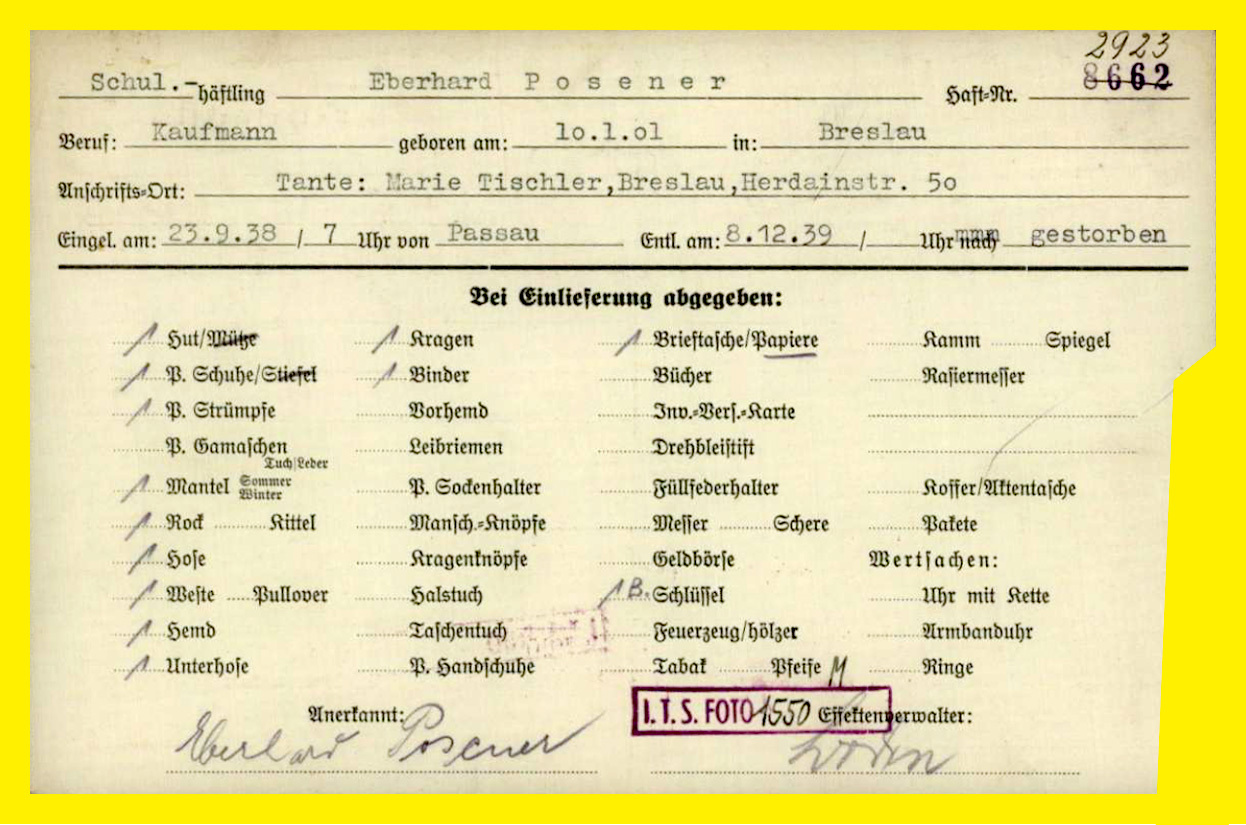 2923
Schul.-häftling Eberhard Posener Haft-Nr. 8662
Beruf: Kaufmann geboren am: 10.1.01 in: Breslau
Anschrifts-Ort: Tante: Marie Tischler,Breslau,Herdainstr. 50
Eingel. am: 23.9.38 / 7 Uhr von Passau Entl. am: 8.12.39 / Uhr nach gestorben
Bei Einlieferung abgegeben:
/ Hut/Mütze / Kragen / Brieftasche/Papiere Kamm Spiegel
/ P. Schuhe/Stiefel / Binder Bücher Rasiermesser
/ P. Strümpfe Vorhemd Inv.-Vers.-Karte
P. Gamaschen Leibriemen Drehbleistift
Tuch/Leder
/ Mantel Sommer Winter P. Sockenhalter Füllfederhalter Koffer/Aktentasche
/ Rock Kittel Mansch.-Knöpfe Messer Schere Pakete
/ Hose Kragenknöpfe Geldbörse Wertsachen:
/ Weste Pullover Halstuch / B. Schlüssel Uhr mit Kette
/ Hemd Taschentuch Feuerzeug/hölzer Armbanduhr
/ Unterhose P. Handschuhe Tabak Pfeife M Ringe
Anerkannt: I.T.S. FOTO 1550 Effektenverwalter:
Eberhard Posener